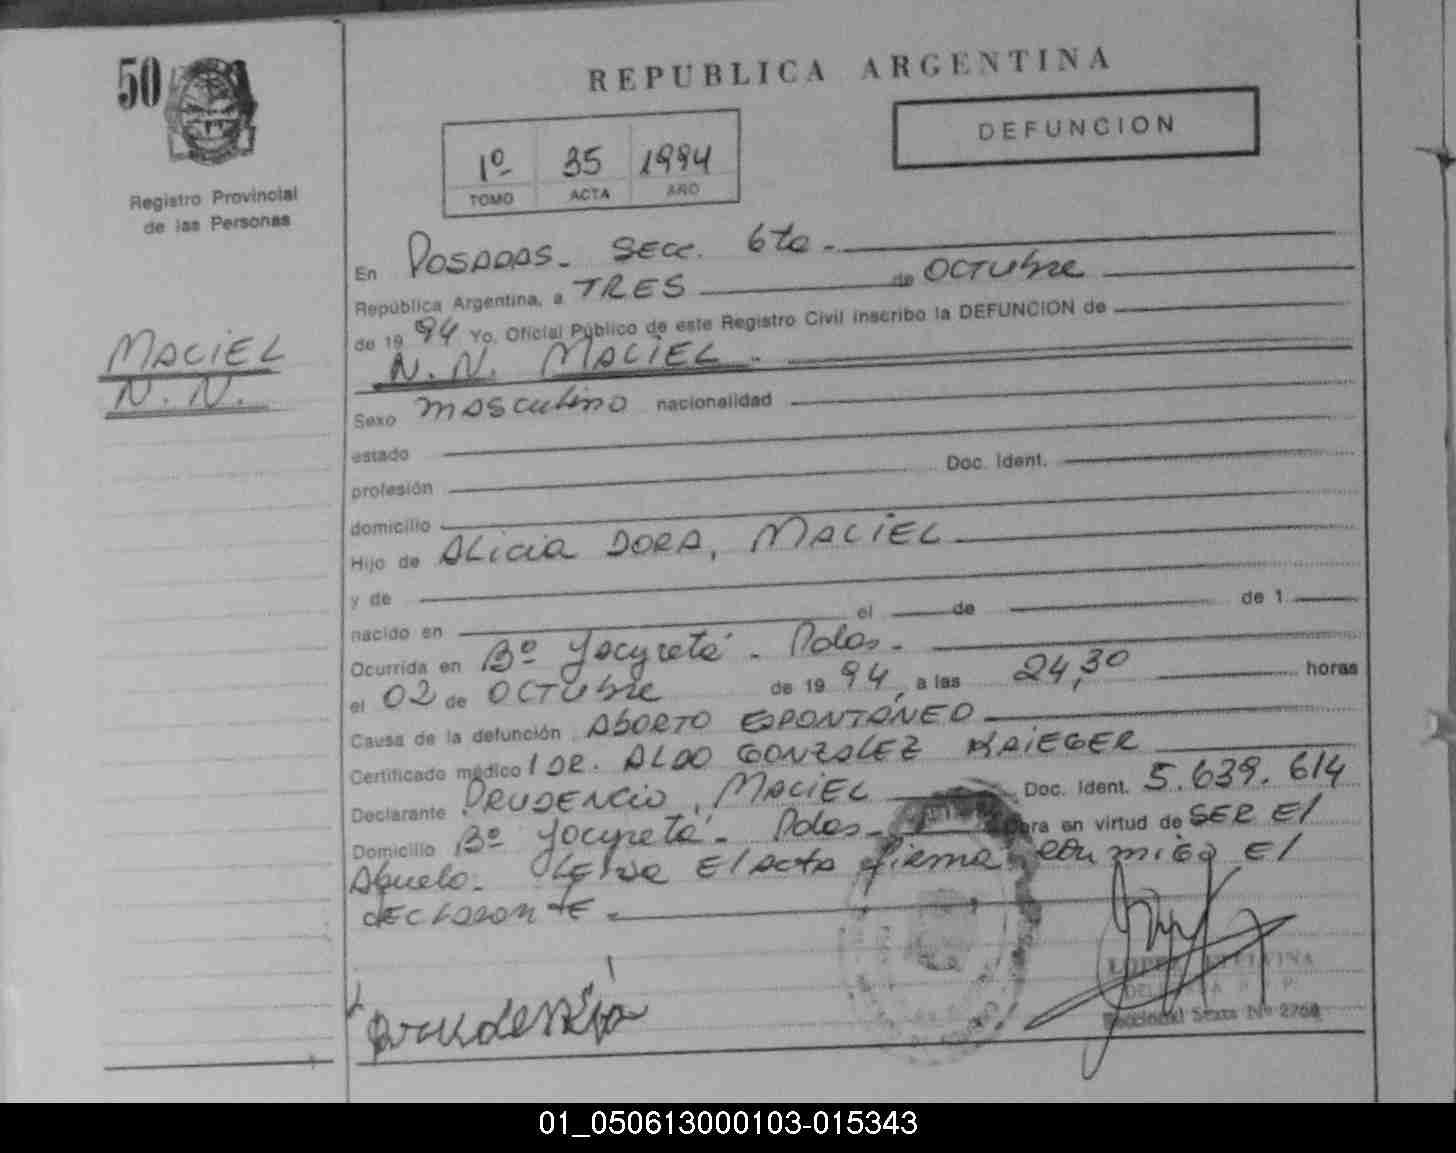 50
REPUBLICA ARGENTINA
DEFUNCION
1º 35 1994
TOMO ACTA AÑO
Registro Provincial
de las Personas
MACIEL
N.N.
En POSADAS - SECC. 6ta -
República Argentina, a TRES de OCTUbre
de 1994 Yo, Oficial Público de este Registro Civil inscribo la DEFUNCION de
N.N. MACIEL -
Sexo masculino nacionalidad
estado
profesión Doc. Ident.
domicilio
Hijo de ALICIA DORA, MACIEL
y de
nacido en el de de 1
Ocurrida en Bº Yacyretá - Pdas -
el 02 de OCTUbre de 1994, a las 24,30 horas
Causa de la defunción ABORTO ESPONTANEO
Certificado médico DR. ALDO GONZALEZ KRIEGER
Declarante PRUDENCIO, MACIEL Doc. Ident. 5.639.614
Domicilio Bº Yacyretá - Pdas - Obra en virtud de SER El
Abuelo - Leída El acta firma conmigo El
dECLARANTE -
LOPEZ ETELVINA
Seccional Sexta Nº 2760
01_050613000103-015343